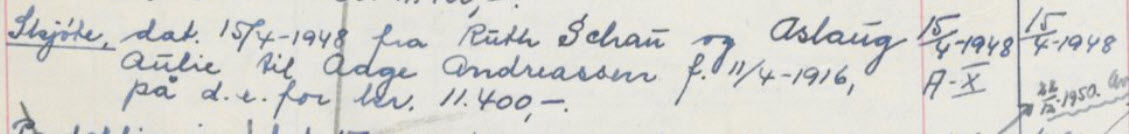 Skjøte, dat. 15/4-1948 fra Ruth Schau og Aslaug 15/4-1948 15/4-1948
Aulie til Aage Andreassen f. 11/4-1916, A-X
på d.e. for kr. 11.400,-. 22/12-1950.